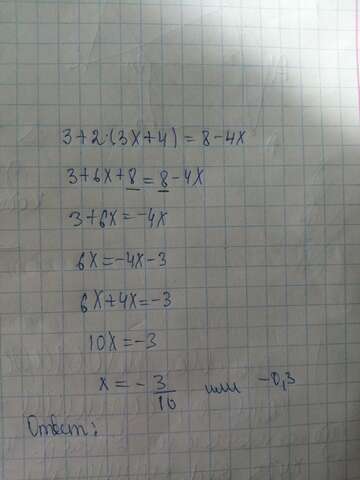 3+2·(3x+4)=8-4x
3+6x+8=8-4x
3+6x=-4x
6x=-4x-3
6x+4x=-3
10x=-3
x=-3/10 или -0,3
Ответ: